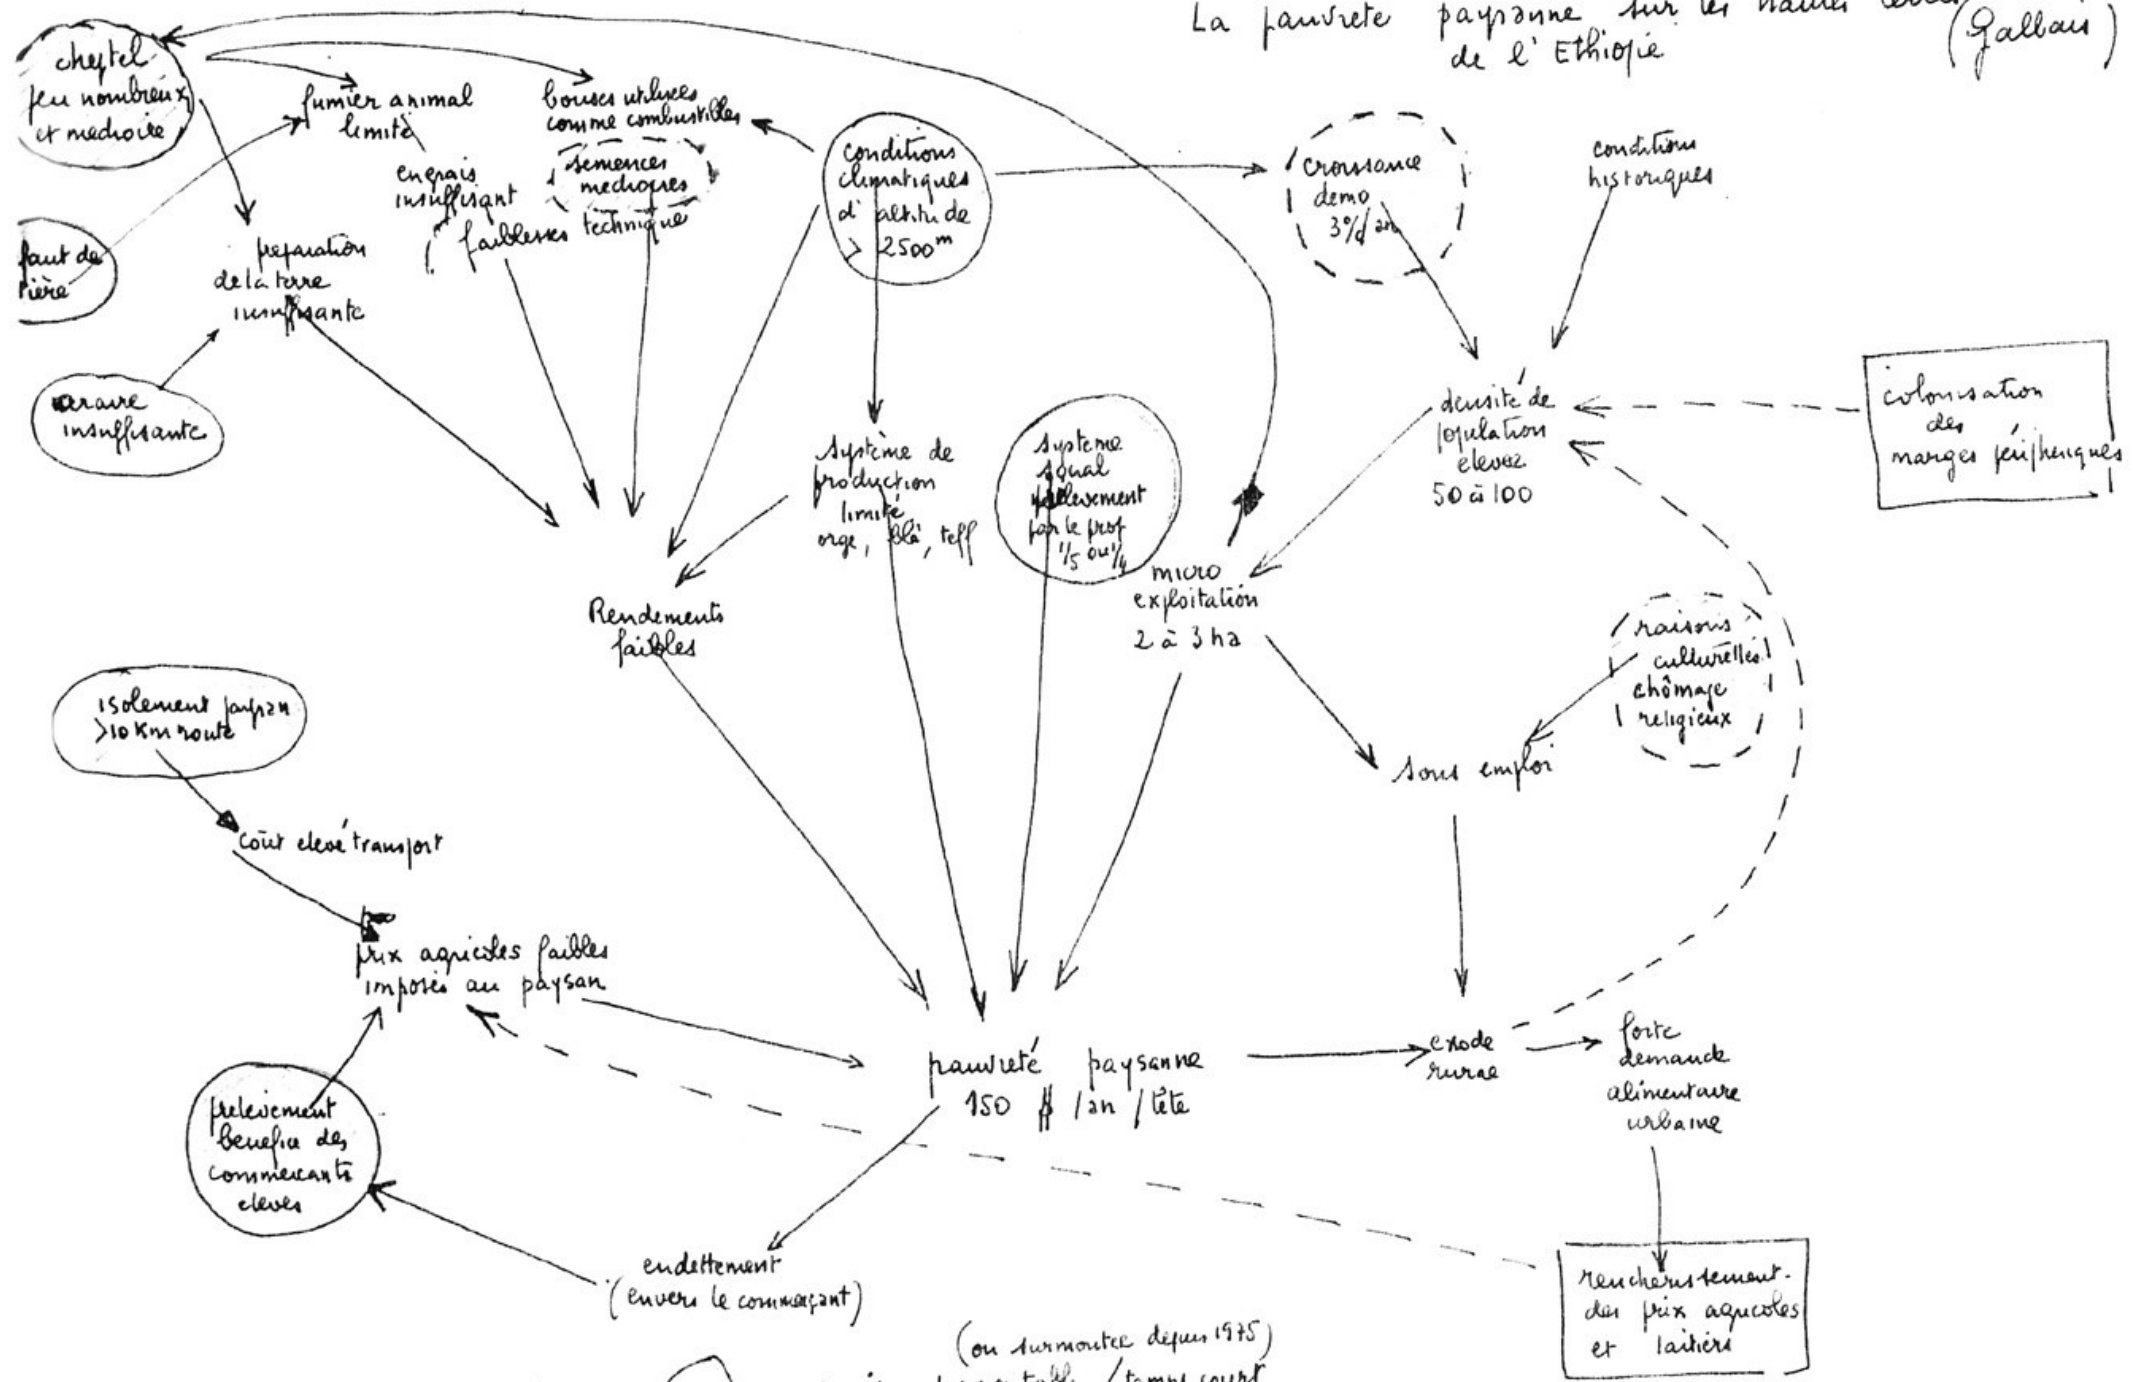 La pauvrete paysanne sur les hautes
de l'Ethiopie
(Gallais)
cheptel
peu nombreux
et mediocre
fumier animal
limité
bouses utilisees
comme combustibles
engrais
insuffisant
semences
mediocres
faiblesses technique
conditions
climatiques
d'altitude
> 2500m
croissance
demo
3%/an
conditions
historiques
faut de
tière
preparation
de la terre
insuffisante
araire
insuffisante
système de
production
limité
orge, blé, teff
systeme
prelevement
par le prop
1/5 ou 1/4
densité de
population
elevee
50 à 100
colonisation
des
marges périphériques
micro
exploitation
2 à 3 ha
Rendements
faibles
raisons
culturelles
chômage
religieux
isolement paysan
>10 Km route
sous emploi
coût elevé transport
prix agricoles faibles
imposés au paysan
pauvreté paysanne
150 $ /an /tête
exode
rural
forte
demande
alimentaire
urbaine
prelevement
benefice des
commercants
eleves
endettement
(envers le commerçant)
rencherissement
des prix agricoles
et laitiers
(ou surmontee depuis 1975)
/ temps court